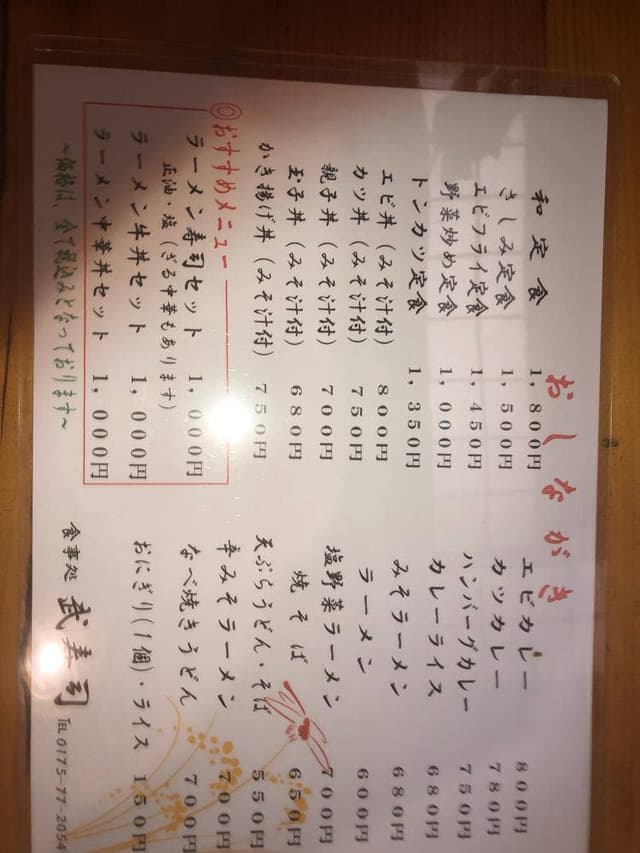 おしながき
和定食 1,800円
さしみ定食 1,500円
エビフライ定食 1,450円
野菜炒め定食 1,000円
トンカツ定食 1,350円
エビ丼（みそ汁付） 800円
カツ丼（みそ汁付） 750円
親子丼（みそ汁付） 700円
玉子丼（みそ汁付） 680円
かき揚げ丼（みそ汁付） 750円
◎おすすめメニュー
ラーメン寿司セット 1,000円
正油・塩（ざる中華もあります）
ラーメン牛丼セット 1,000円
ラーメン中華丼セット 1,000円
～価格は、全て税込みとなっております～
エビカレー 800円
カツカレー 780円
ハンバーグカレー 750円
カレーライス 680円
みそラーメン 680円
ラーメン 600円
塩野菜ラーメン 700円
焼そば 650円
天ぷらうどん・そば 550円
辛みそラーメン 700円
なべ焼きうどん 700円
おにぎり(1個)・ライス 150円
食事処 武寿司 TEL 0175-77-2054